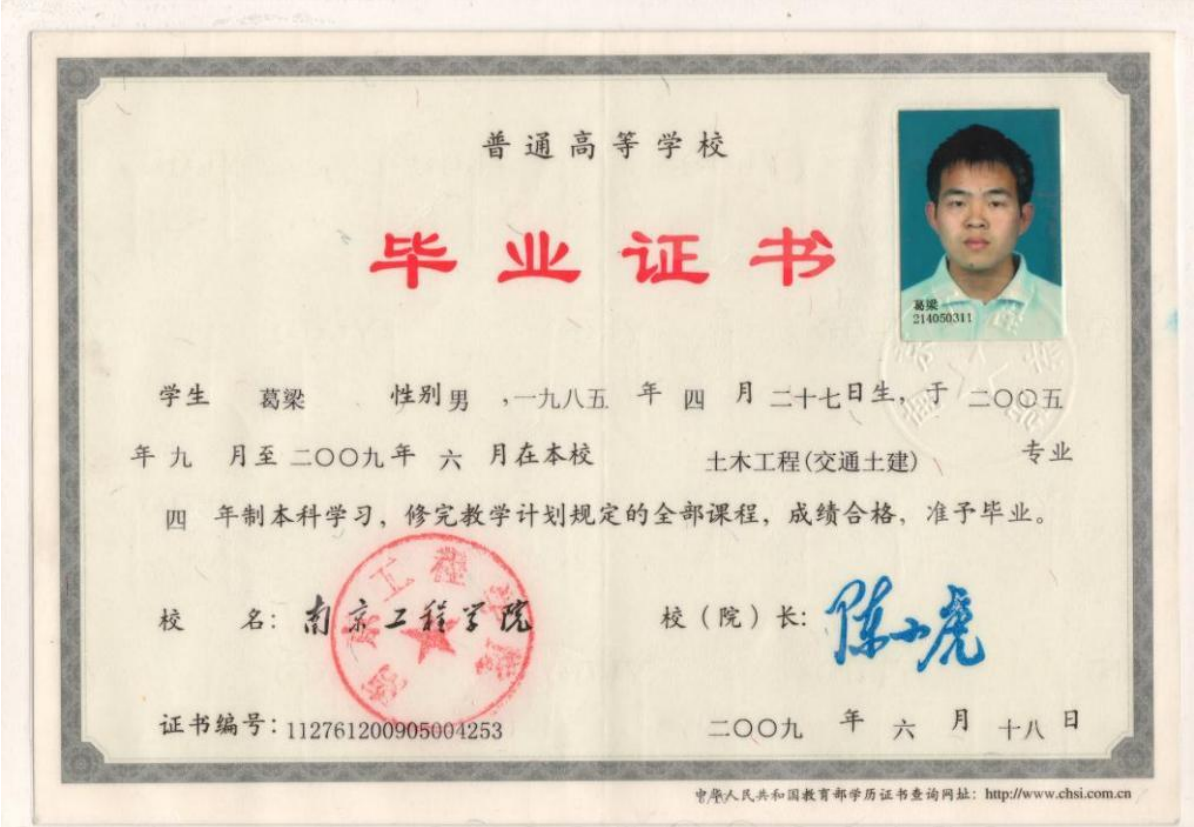 普通高等学校
毕业证书
葛梁
214050311
学生 葛梁 性别 男 ,一九八五 年 四 月 二十七日生，于 二〇〇五
年 九 月至 二〇〇九 年 六 月在本校 土木工程(交通土建) 专业
四 年制本科学习，修完教学计划规定的全部课程，成绩合格，准予毕业。
校 名：南京工程学院
校（院）长：陈小虎
证书编号：112761200905004253
二〇〇九 年 六 月 十八 日
中华人民共和国教育部学历证书查询网址：http://www.chsi.com.cn